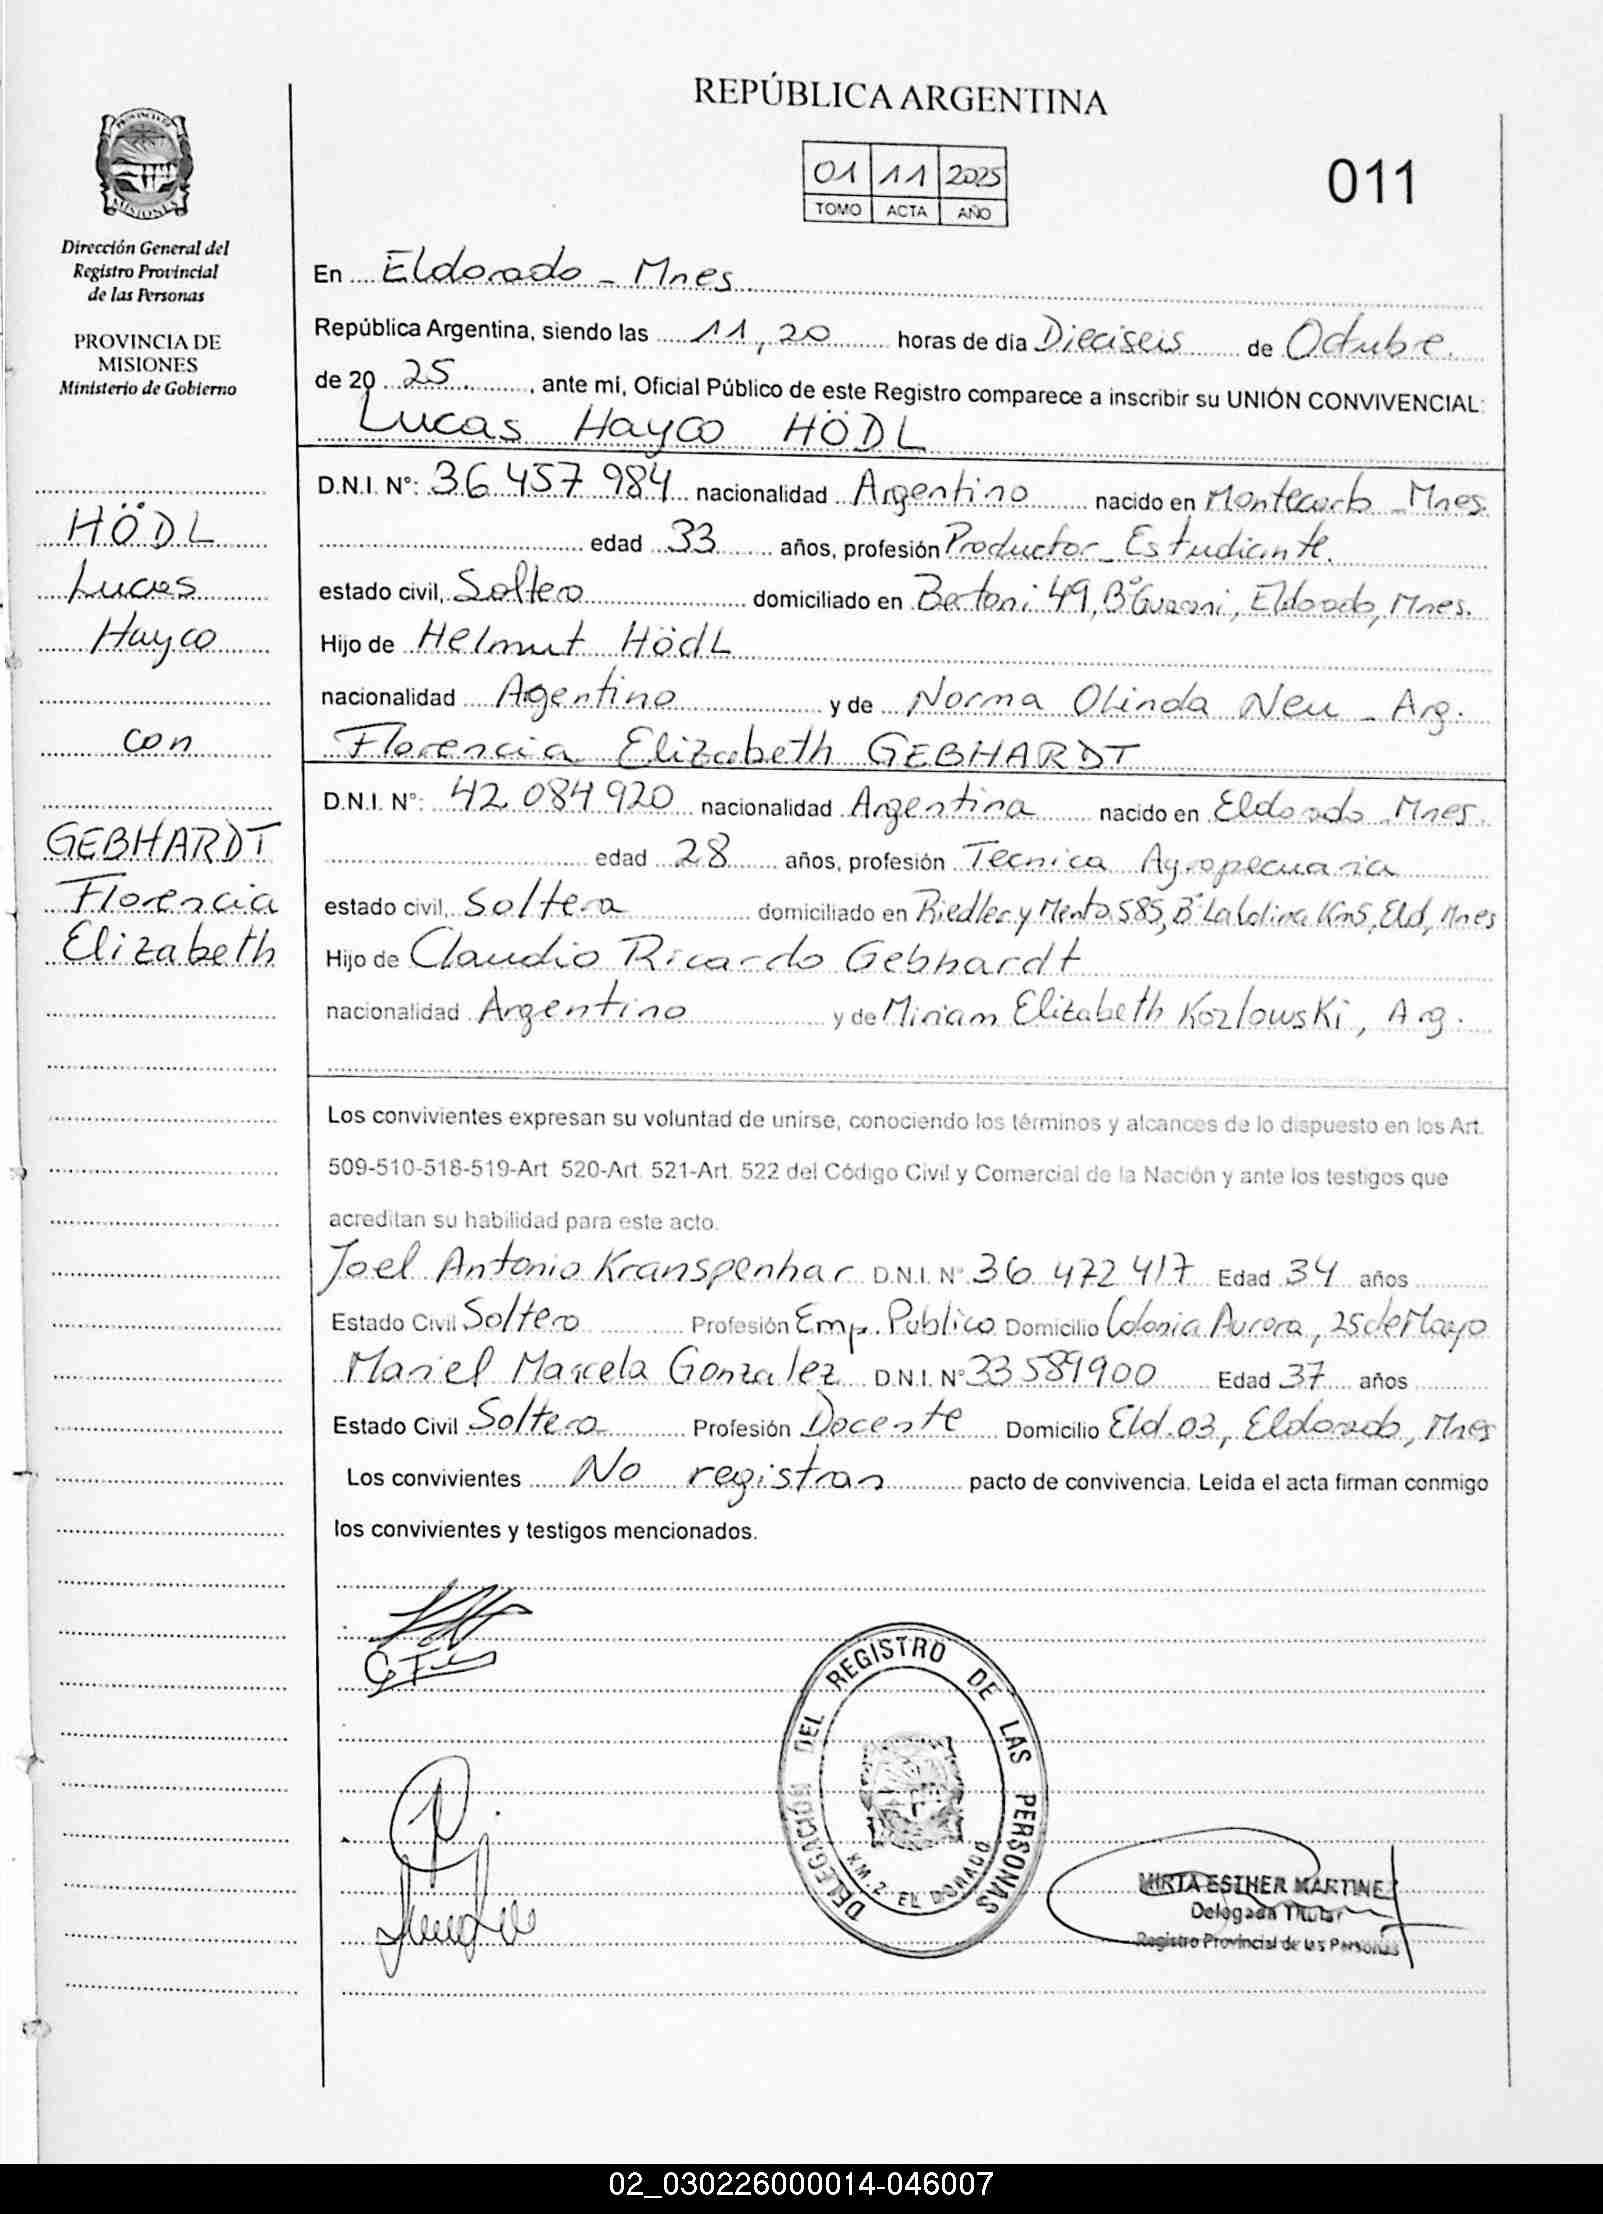 REPÚBLICA ARGENTINA
01 11 2025
TOMO ACTA AÑO
011
PROVINCIA DE
MISIONES
Dirección General del
Registro Provincial
de las Personas
PROVINCIA DE
MISIONES
Ministerio de Gobierno
HÖDL
Lucas
Hayco
con
GEBHARDT
Florencia
Elizabeth
En Eldorado - Mnes
República Argentina, siendo las 11,20 horas de día Dieciseis de Octubre.
de 20 25 , ante mí, Oficial Público de este Registro comparece a inscribir su UNIÓN CONVIVENCIAL:
Lucas Hayco HÖDL
D.N.I. N°: 36 457 984 nacionalidad Argentino nacido en Montecarlo - Mnes.
edad 33 años, profesión Productor - Estudiante.
estado civil, Soltero domiciliado en Bertoni 49, B° Guarani, Eldorado, Mnes.
Hijo de Helmut HödL
nacionalidad Agentino y de Norma Olinda Neu - Arg.
Florencia Elizabeth GEBHARDT
D.N.I. N°: 42 084 920 nacionalidad Argentina nacido en Eldorado Mnes.
edad 28 años, profesión Tecnica Agropecuaria
estado civil, Soltera domiciliado en Riedler y Mento 585, B° La Colina Km5, Eld, Mnes
Hijo de Claudio Ricardo Gebhardt
nacionalidad Argentino y de Miriam Elizabeth Kozlowski, Arg.
Los convivientes expresan su voluntad de unirse, conociendo los términos y alcances de lo dispuesto en los Art.
509-510-518-519-Art 520-Art. 521-Art. 522 del Código Civil y Comercial de la Nación y ante los testigos que
acreditan su habilidad para este acto.
Joel Antonio Kranspenhar D.N.I. N° 36 472 417 Edad 34 años
Estado Civil Soltero Profesión Emp. Publico Domicilio Colonia Aurora, 25 de Mayo
Mariel Marcela Gonzalez D.N.I. N° 33 589900 Edad 37 años
Estado Civil Soltera Profesión Docente Domicilio Eld. 03, Eldorado, Mnes
Los convivientes No registran pacto de convivencia. Leída el acta firman conmigo
los convivientes y testigos mencionados.
DELEGACION DEL REGISTRO DE LAS PERSONAS
KM. 2 EL DORADO
MIRTA ESTHER MARTINEZ
Delegada Titular
Registro Provincial de las Personas
02_030226000014-046007